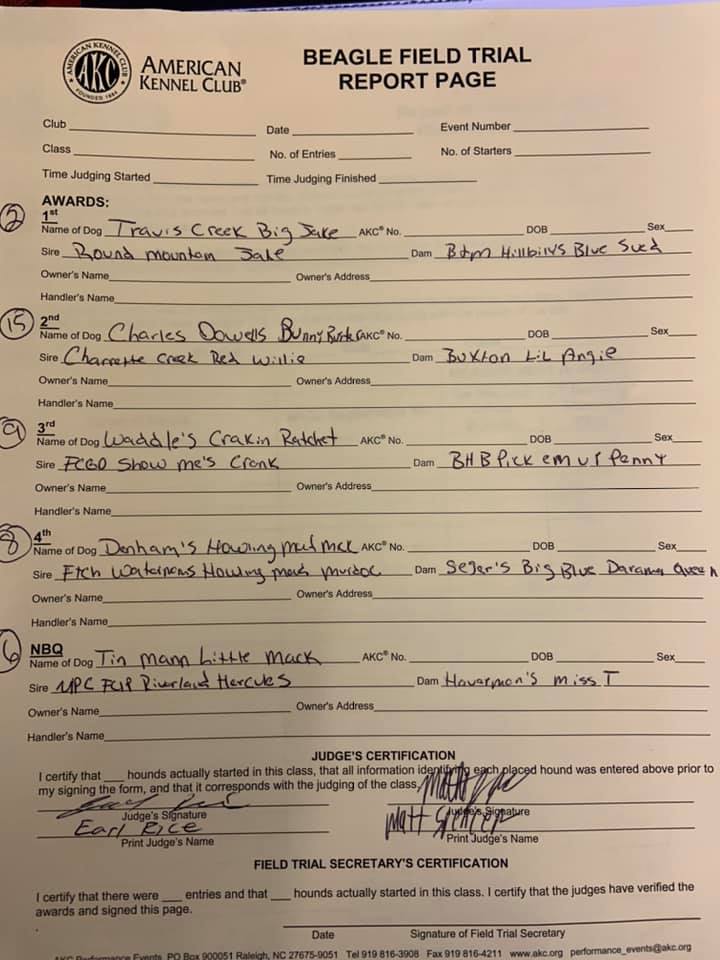 AMERICAN KENNEL CLUB
AKC
FOUNDED 1884
AMERICAN
KENNEL CLUB®
BEAGLE FIELD TRIAL
REPORT PAGE
Club Date Event Number
Class No. of Entries No. of Starters
Time Judging Started Time Judging Finished
AWARDS:
2 1st
Name of Dog Travis Creek Big Jake AKC® No. DOB Sex
Sire Round mountain Jake Dam Bdm Hillbilys Blue Sued
Owner's Name Owner's Address
Handler's Name
15 2nd
Name of Dog Charles Dowells Bunny Buster AKC® No. DOB Sex
Sire Charrette Creek Red Willie Dam Buxton Lil Angie
Owner's Name Owner's Address
Handler's Name
9 3rd
Name of Dog Waddle's Crakin Ratchet AKC® No. DOB Sex
Sire FCGD Show me's Crank Dam BHB Pick em up Penny
Owner's Name Owner's Address
Handler's Name
8 4th
Name of Dog Denham's Howling mud mck AKC® No. DOB Sex
Sire Howling Murdoc Dam Seger's Big Blue Darama Queen
Owner's Name Owner's Address
Handler's Name
6 NBQ
Name of Dog Tin mann Little Mack AKC® No. DOB Sex
Sire Riverland Hercules Dam miss T
Owner's Name Owner's Address
Handler's Name
JUDGE'S CERTIFICATION
I certify that ___ hounds actually started in this class, that all information identifying each placed hound was entered above prior to
my signing the form, and that it corresponds with the judging of the class.
Judge's Signature Judge's Signature
Earl Rice Matt Spencer
Print Judge's Name Print Judge's Name
FIELD TRIAL SECRETARY'S CERTIFICATION
I certify that there were ___ entries and that ___ hounds actually started in this class. I certify that the judges have verified the
awards and signed this page.
Date Signature of Field Trial Secretary
AKC Performance Events PO Box 900051 Raleigh, NC 27675-9051 Tel 919 816-3908 Fax 919 816-4211 www.akc.org performance_events@akc.org